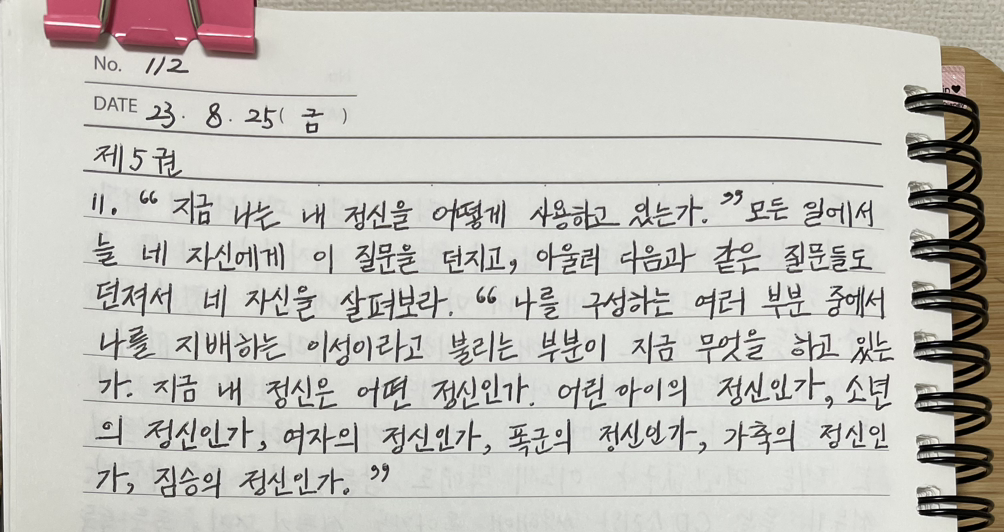 No. 112
DATE 23. 8. 25 ( 금 )
제5권
11. “ 지금 나는 내 정신을 어떻게 사용하고 있는가. ” 모든 일에서
늘 네 자신에게 이 질문을 던지고, 아울러 다음과 같은 질문들도
던져서 네 자신을 살펴보라. “ 나를 구성하는 여러 부분 중에서
나를 지배하는 이성이라고 불리는 부분이 지금 무엇을 하고 있는
가. 지금 내 정신은 어떤 정신인가. 어린 아이의 정신인가, 소년
의 정신인가, 여자의 정신인가, 폭군의 정신인가, 가축의 정신인
가, 짐승의 정신인가. ”